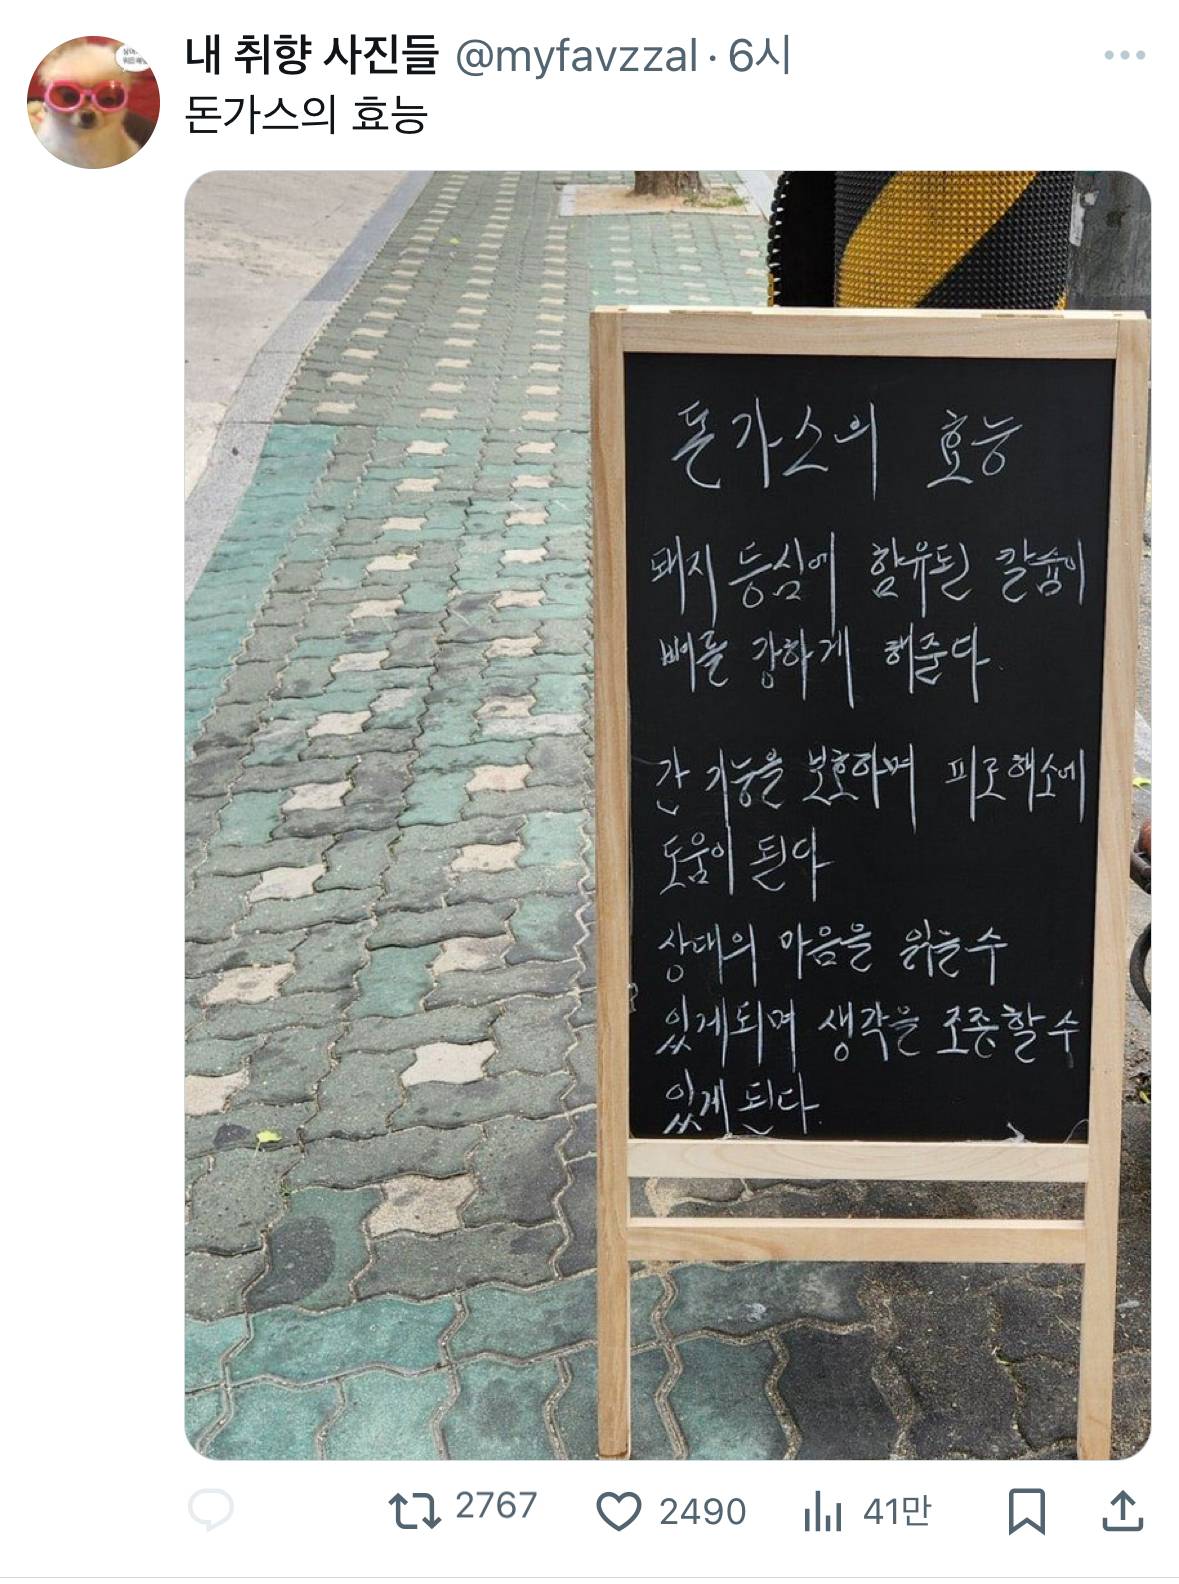 내 취향 사진들 @myfavzzal · 6시
돈가스의 효능
돈가스의 효능
돼지 등심에 함유된 칼슘이
뼈를 강하게 해준다.
간 기능을 보호하며 피로해소에
도움이 된다
상대의 마음을 읽을수
있게되며 생각을 조종할수
있게 된다.
2767 2490 41만